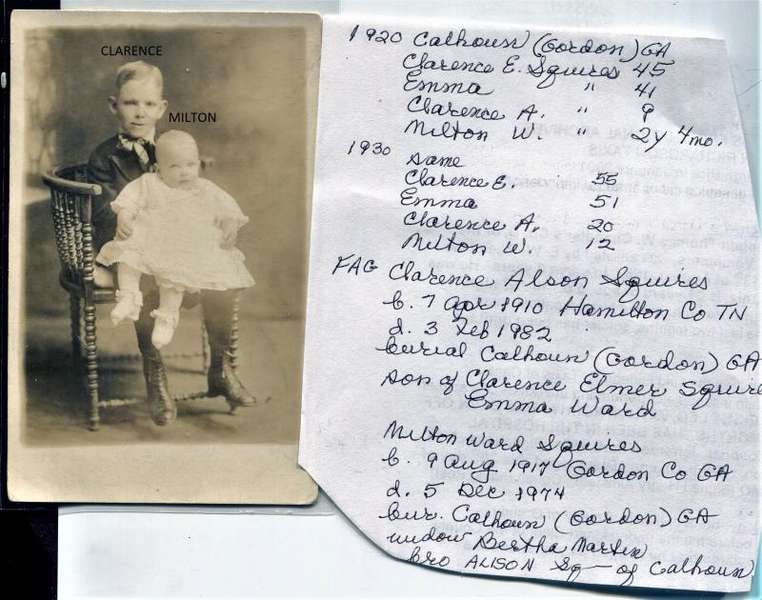 CLARENCE
MILTON
1920 Calhoun (Gordon) GA
Clarence E. Squires 45
Emma " 41
Clarence A. " 9
Milton W. " 2y 4mo.
1930 same
Clarence E. 55
Emma 51
Clarence A. 20
Milton W. 12
FAG Clarence Alson Squires
b. 7 Apr 1910 Hamilton Co TN
d. 3 Feb 1982
burial Calhoun (Gordon) GA
son of Clarence Elmer Squire
Emma Ward
Milton Ward Squires
b. 9 Aug 1917 Gordon Co GA
d. 5 Dec 1974
bur. Calhoun (Gordon) GA
widow Bertha Martin
bro ALISON Sq— of Calhoun